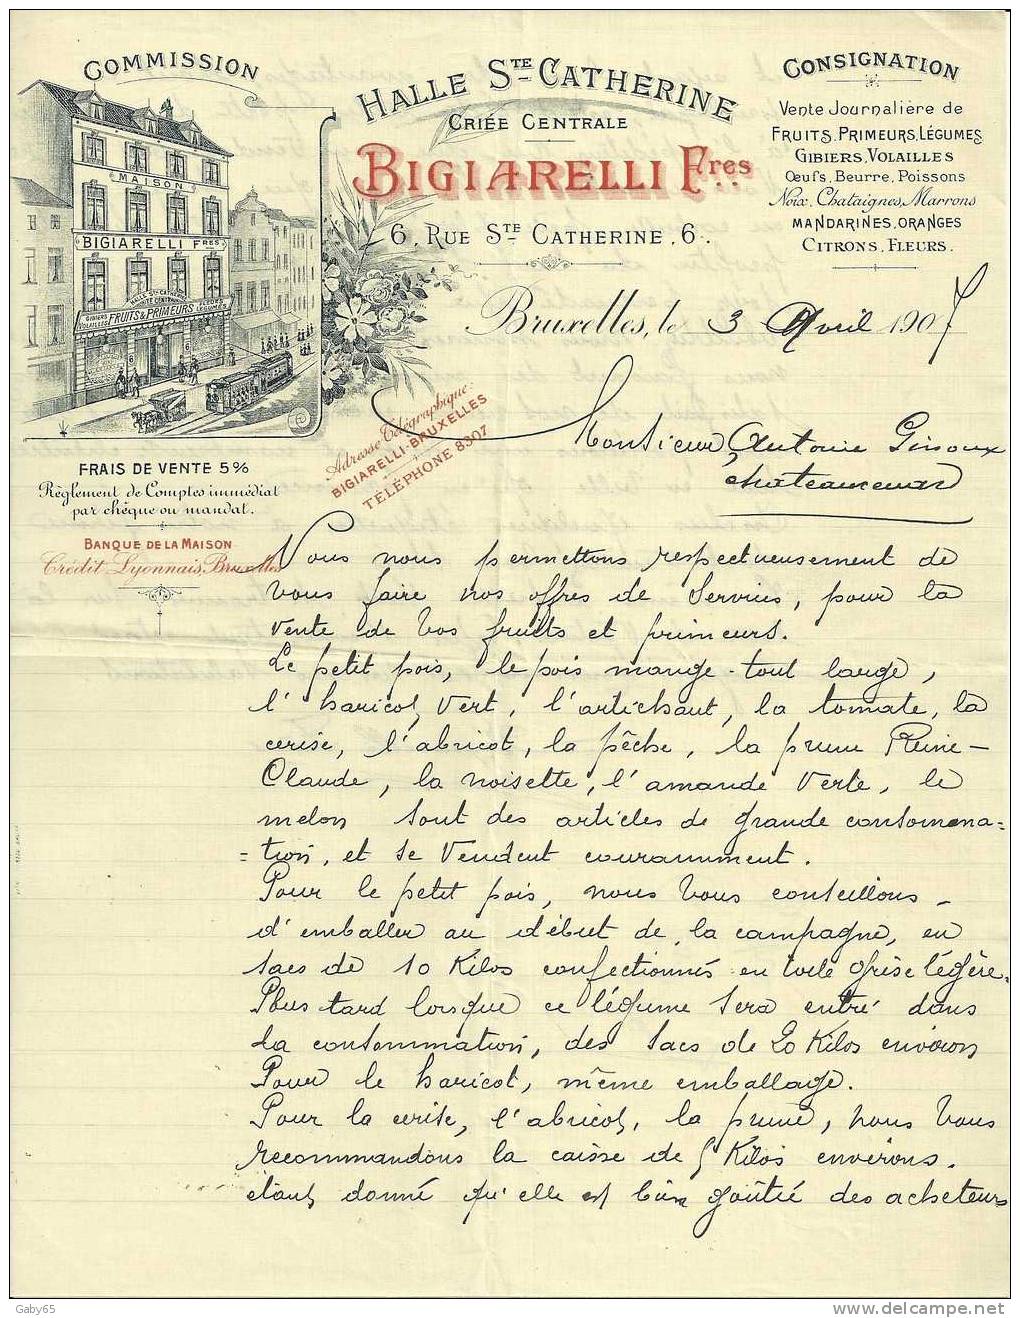 COMMISSION
HALLE STE CATHERINE
CRIÉE CENTRALE
BIGIARELLI Fres
6, RUE STE CATHERINE, 6.
CONSIGNATION
Vente Journalière de
FRUITS, PRIMEURS, LÉGUMES
GIBIERS, VOLAILLES
Œufs, Beurre, Poissons
Noix, Chataignes, Marrons
MANDARINES, ORANGES
CITRONS, FLEURS.
MAISON
BIGIARELLI FRES
HALLE STE CATHERINE
GIBIERS VOLAILLES
FRUITS & PRIMEURS
FLEURS LÉGUMES
6
Bruxelles, le 3 Avril 1907
Adresse Télégraphique:
BIGIARELLI-BRUXELLES
TÉLÉPHONE 8307
FRAIS DE VENTE 5%
Règlement de Comptes immédiat
par chèque ou mandat.
BANQUE DE LA MAISON
Crédit Lyonnais, Bruxelles
Monsieur Antoine Ginoux
Chateaurenard
Nous nous permettons respectueusement de
vous faire nos offres de services, pour la
vente de vos fruits et primeurs.
Le petit pois, le pois mange-tout large,
l'haricot vert, l'artichaut, la tomate, la
cerise, l'abricot, la pêche, la prune Reine-
Claude, la noisette, l'amande verte, le
melon sont des articles de grande consomma=
=tion, et se vendent couramment.
Pour le petit pois, nous vous conseillons
d'emballer au début de la campagne, en
sacs de 10 Kilos confectionnés en toile grise légère.
Plus tard lorsque ce légume sera entré dans
la consommation, des sacs de 20 Kilos environ
Pour le haricot, même emballage.
Pour la cerise, l'abricot, la prune, nous vous
recommandons la caisse de 5 Kilos environs.
étant donné qu'elle est bien goûtée des acheteurs
Gaby65
www.delcampe.net